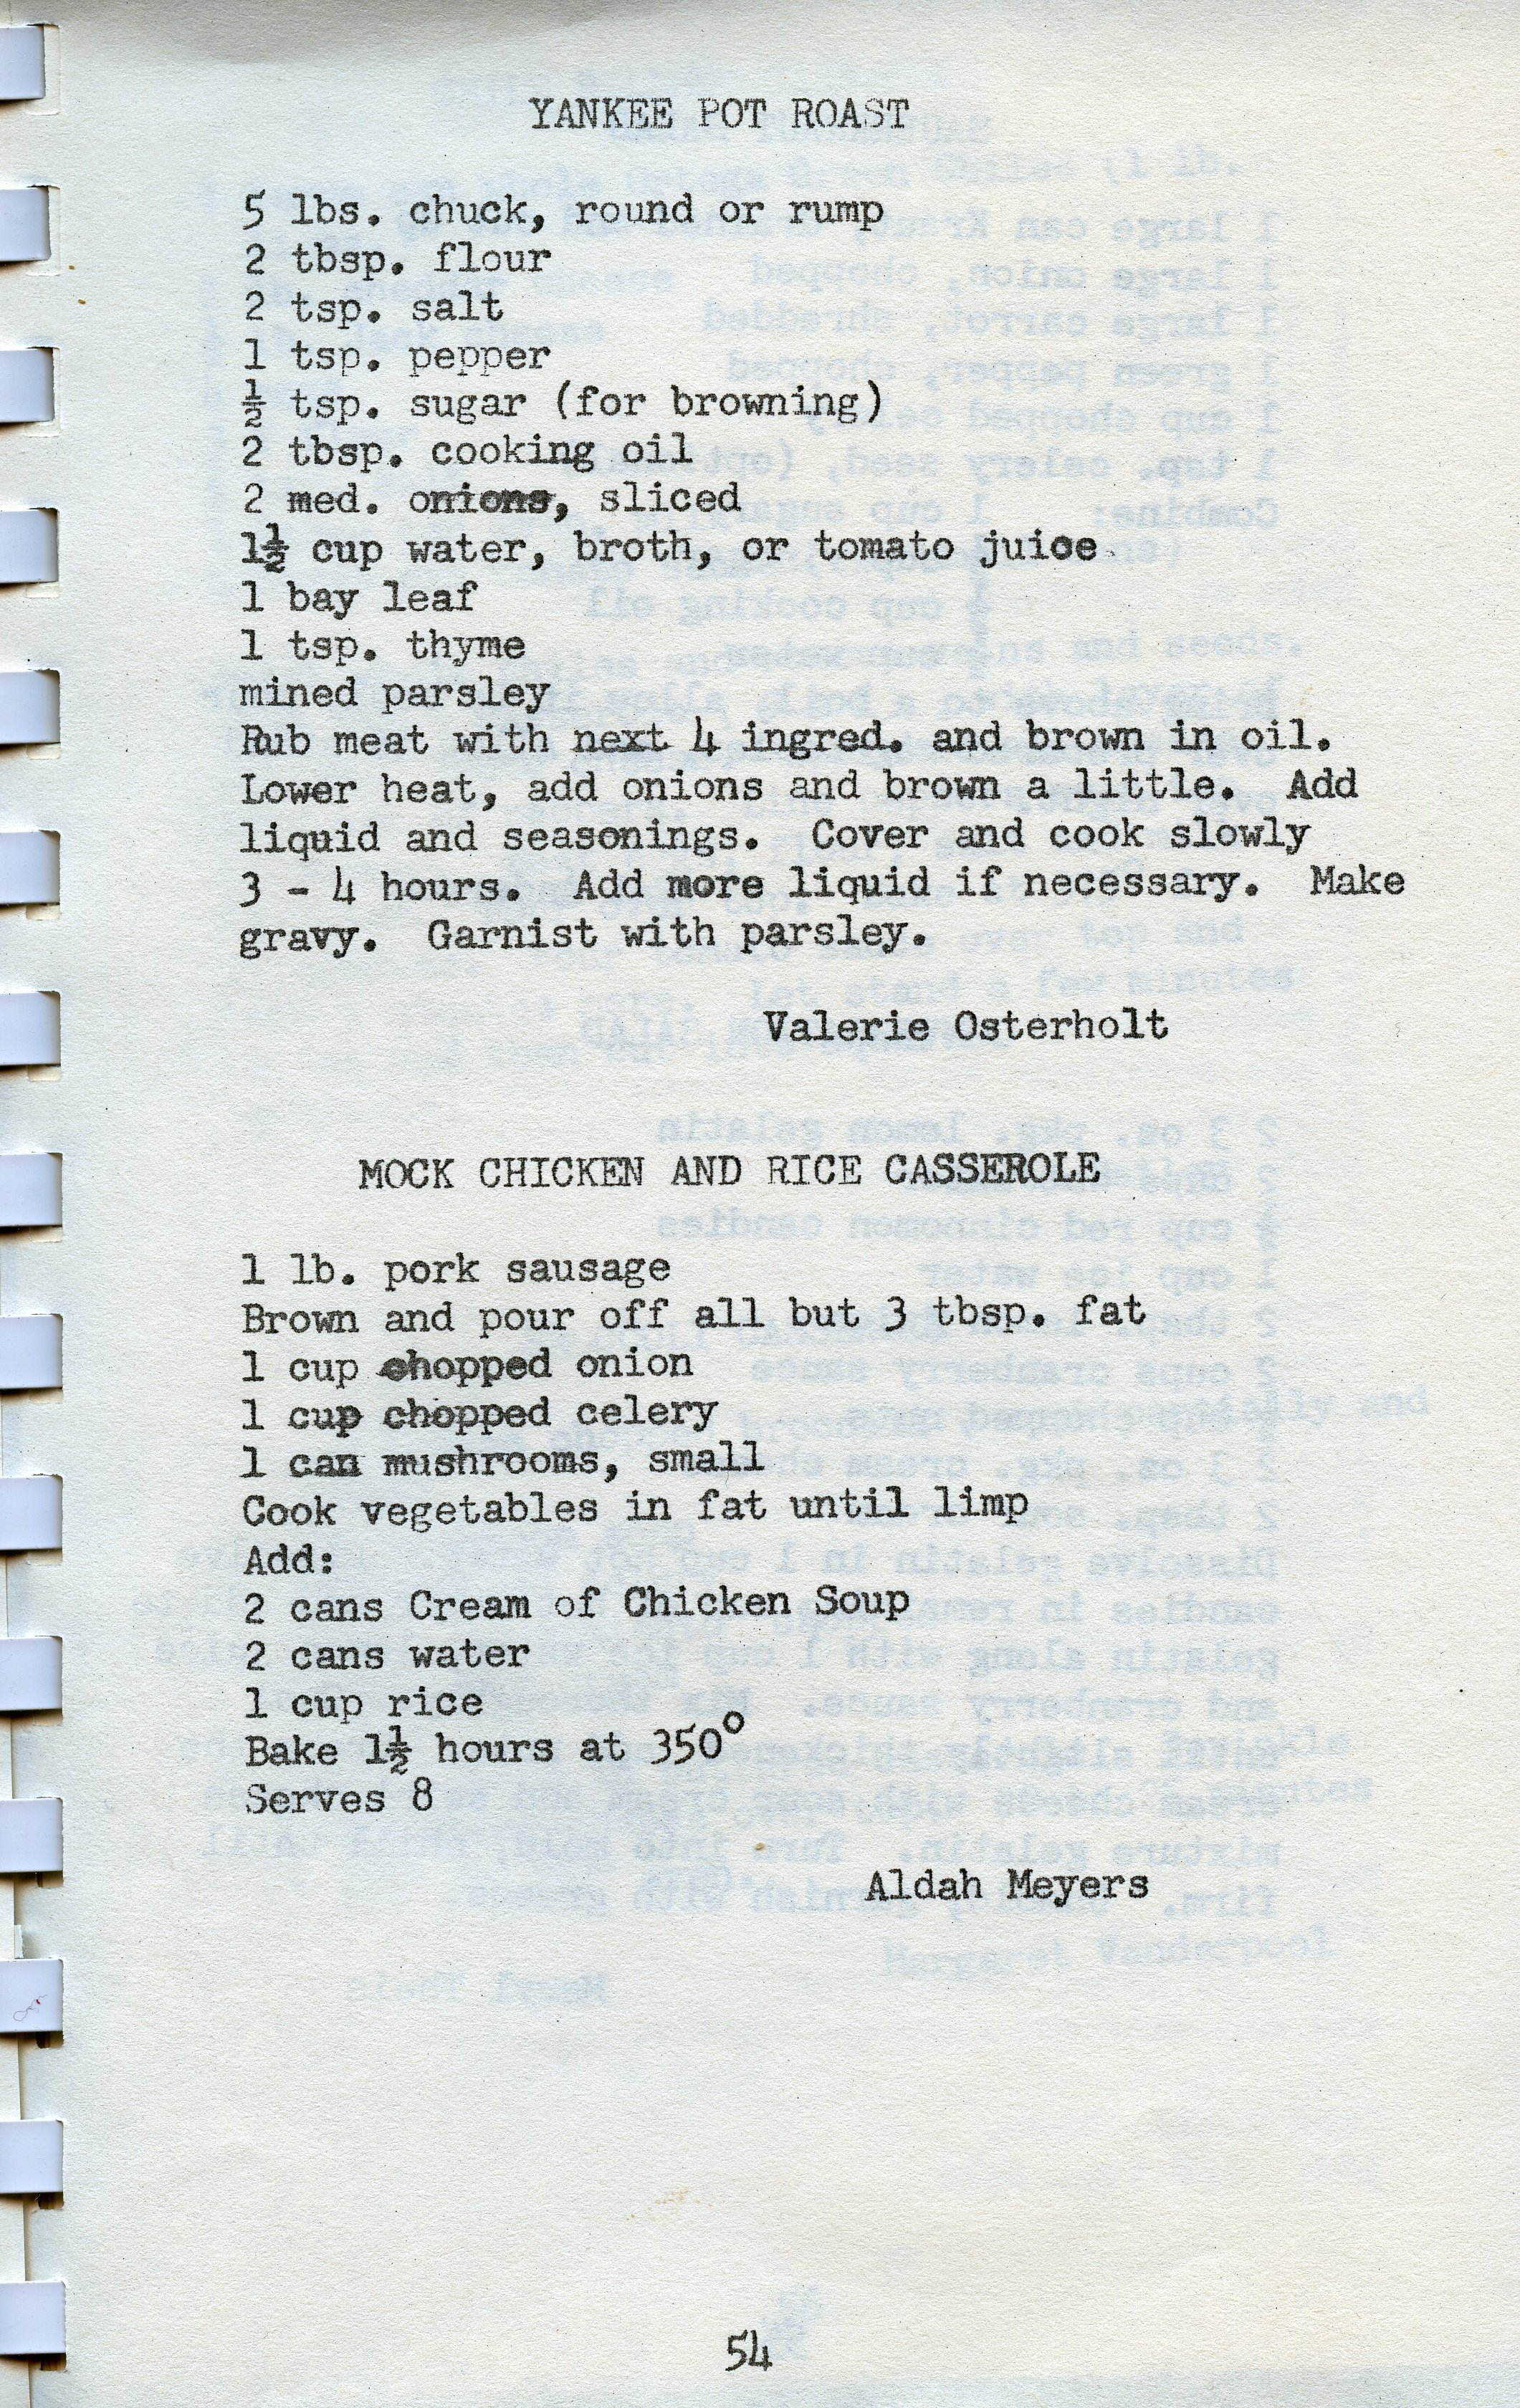 YANKEE POT ROAST
5 lbs. chuck, round or rump
2 tbsp. flour
2 tsp. salt
1 tsp. pepper
½ tsp. sugar (for browning)
2 tbsp. cooking oil
2 med. onions, sliced
1½ cup water, broth, or tomato juice
1 bay leaf
1 tsp. thyme
mined parsley
Rub meat with next 4 ingred. and brown in oil.
Lower heat, add onions and brown a little.  Add
liquid and seasonings.  Cover and cook slowly
3 - 4 hours.  Add more liquid if necessary.  Make
gravy.  Garnist with parsley.
Valerie Osterholt
MOCK CHICKEN AND RICE CASSEROLE
1 lb. pork sausage
Brown and pour off all but 3 tbsp. fat
1 cup chopped onion
1 cup chopped celery
1 can mushrooms, small
Cook vegetables in fat until limp
Add:
2 cans Cream of Chicken Soup
2 cans water
1 cup rice
Bake 1½ hours at 350°
Serves 8
Aldah Meyers
54